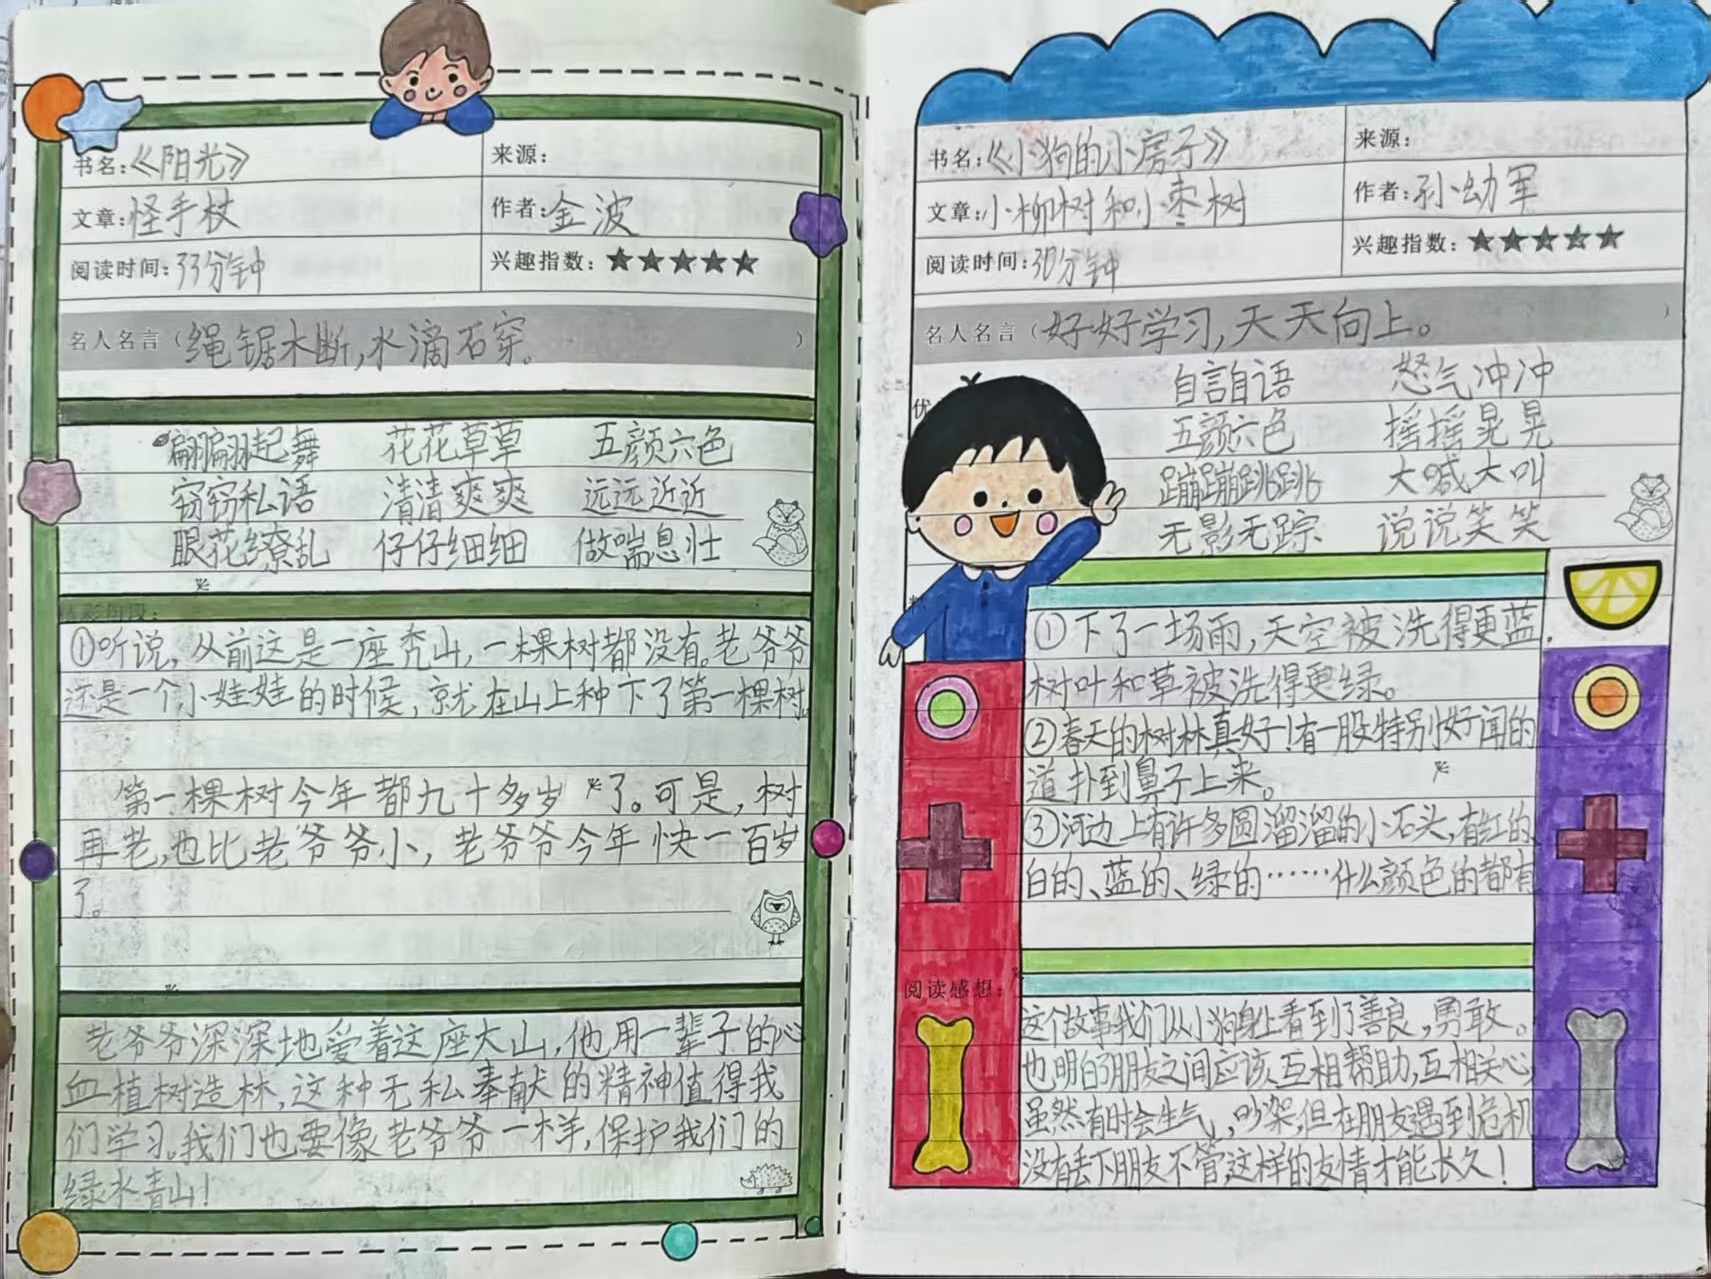 书名:《阳光》
来源:
文章:怪手杖
作者:金波
阅读时间:33分钟
兴趣指数:★★★★★
名人名言(绳锯木断,水滴石穿。)
翩翩起舞 花花草草 五颜六色
窃窃私语 清清爽爽 远远近近
眼花缭乱 仔仔细细 做喘息壮
精彩句段:
①听说,从前这是一座秃山,一棵树都没有。老爷爷
还是一个小娃娃的时候,就在山上种下了第一棵树。
第一棵树今年都九十多岁了。可是,树
再老,也比老爷爷小,老爷爷今年快一百岁
了。
老爷爷深深地爱着这座大山,他用一辈子的心
血植树造林,这种无私奉献的精神值得我
们学习。我们也要像老爷爷一样,保护我们的
绿水青山!
书名:《小狗的小房子》
来源:
文章:小柳树和小枣树
作者:孙幼军
阅读时间:30分钟
兴趣指数:★★★★★
名人名言(好好学习,天天向上。)
优
自言自语 怒气冲冲
五颜六色 摇摇晃晃
蹦蹦跳跳 大喊大叫
无影无踪 说说笑笑
①下了一场雨,天空被洗得更蓝,
树叶和草被洗得更绿。
②春天的树林真好!有一股特别好闻的
道扑到鼻子上来。
③河边上有许多圆溜溜的小石头,有红的、
白的、蓝的、绿的……什么颜色的都有
阅读感想:
这个故事我们从小狗身上看到了善良,勇敢。
也明白了朋友之间应该互相帮助,互相关心,
虽然有时会生气,吵架,但在朋友遇到危机
没有丢下朋友不管,这样的友情才能长久!